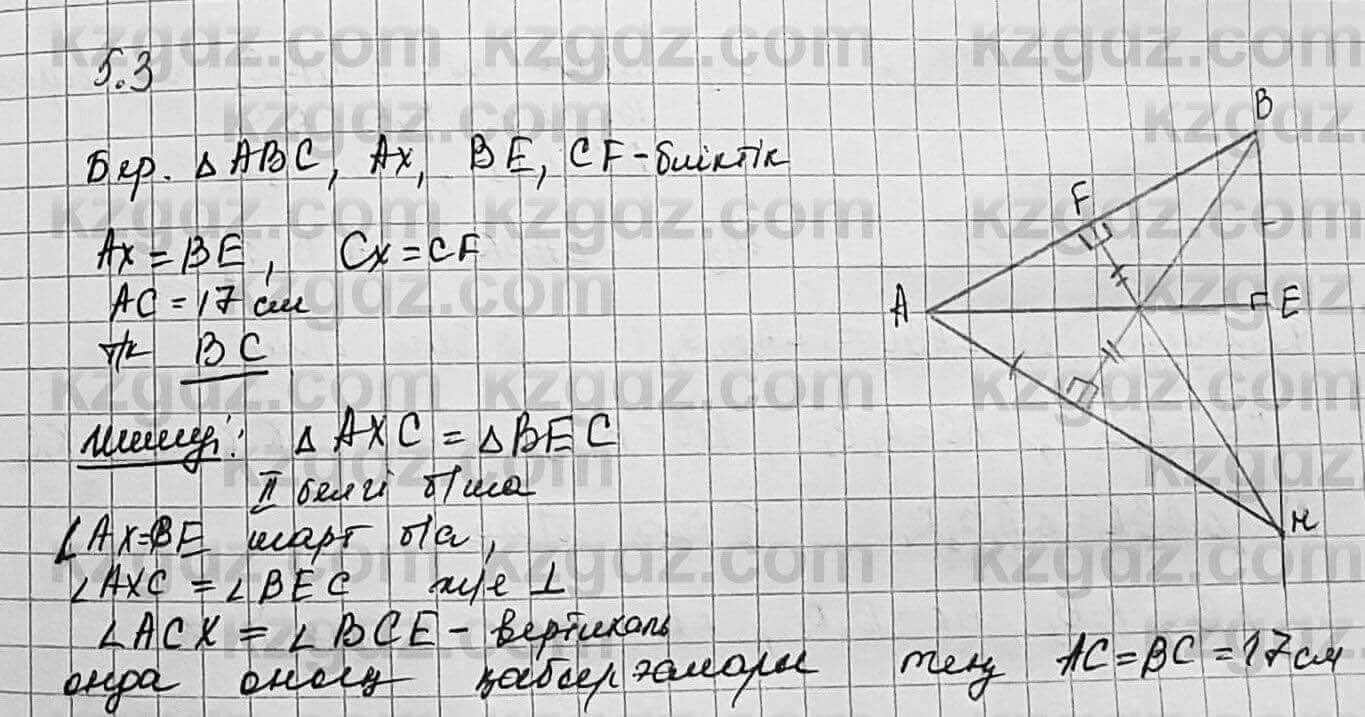 5.3
Бер. △ABC, Ax, BE, CF-биіктік
Ax = BE, Cx = CF
AC = 17 см
т/к BC
Шешуі: △AXC = △BEC
II белгі б/ша
∠Ax=BE шарт б/а,
∠AXC = ∠BEC ж/е ⊥
∠ACX = ∠BCE - вертикаль
онда оның тең AC = BC = 17 см
B
F
A
E
H
kzgdz.com